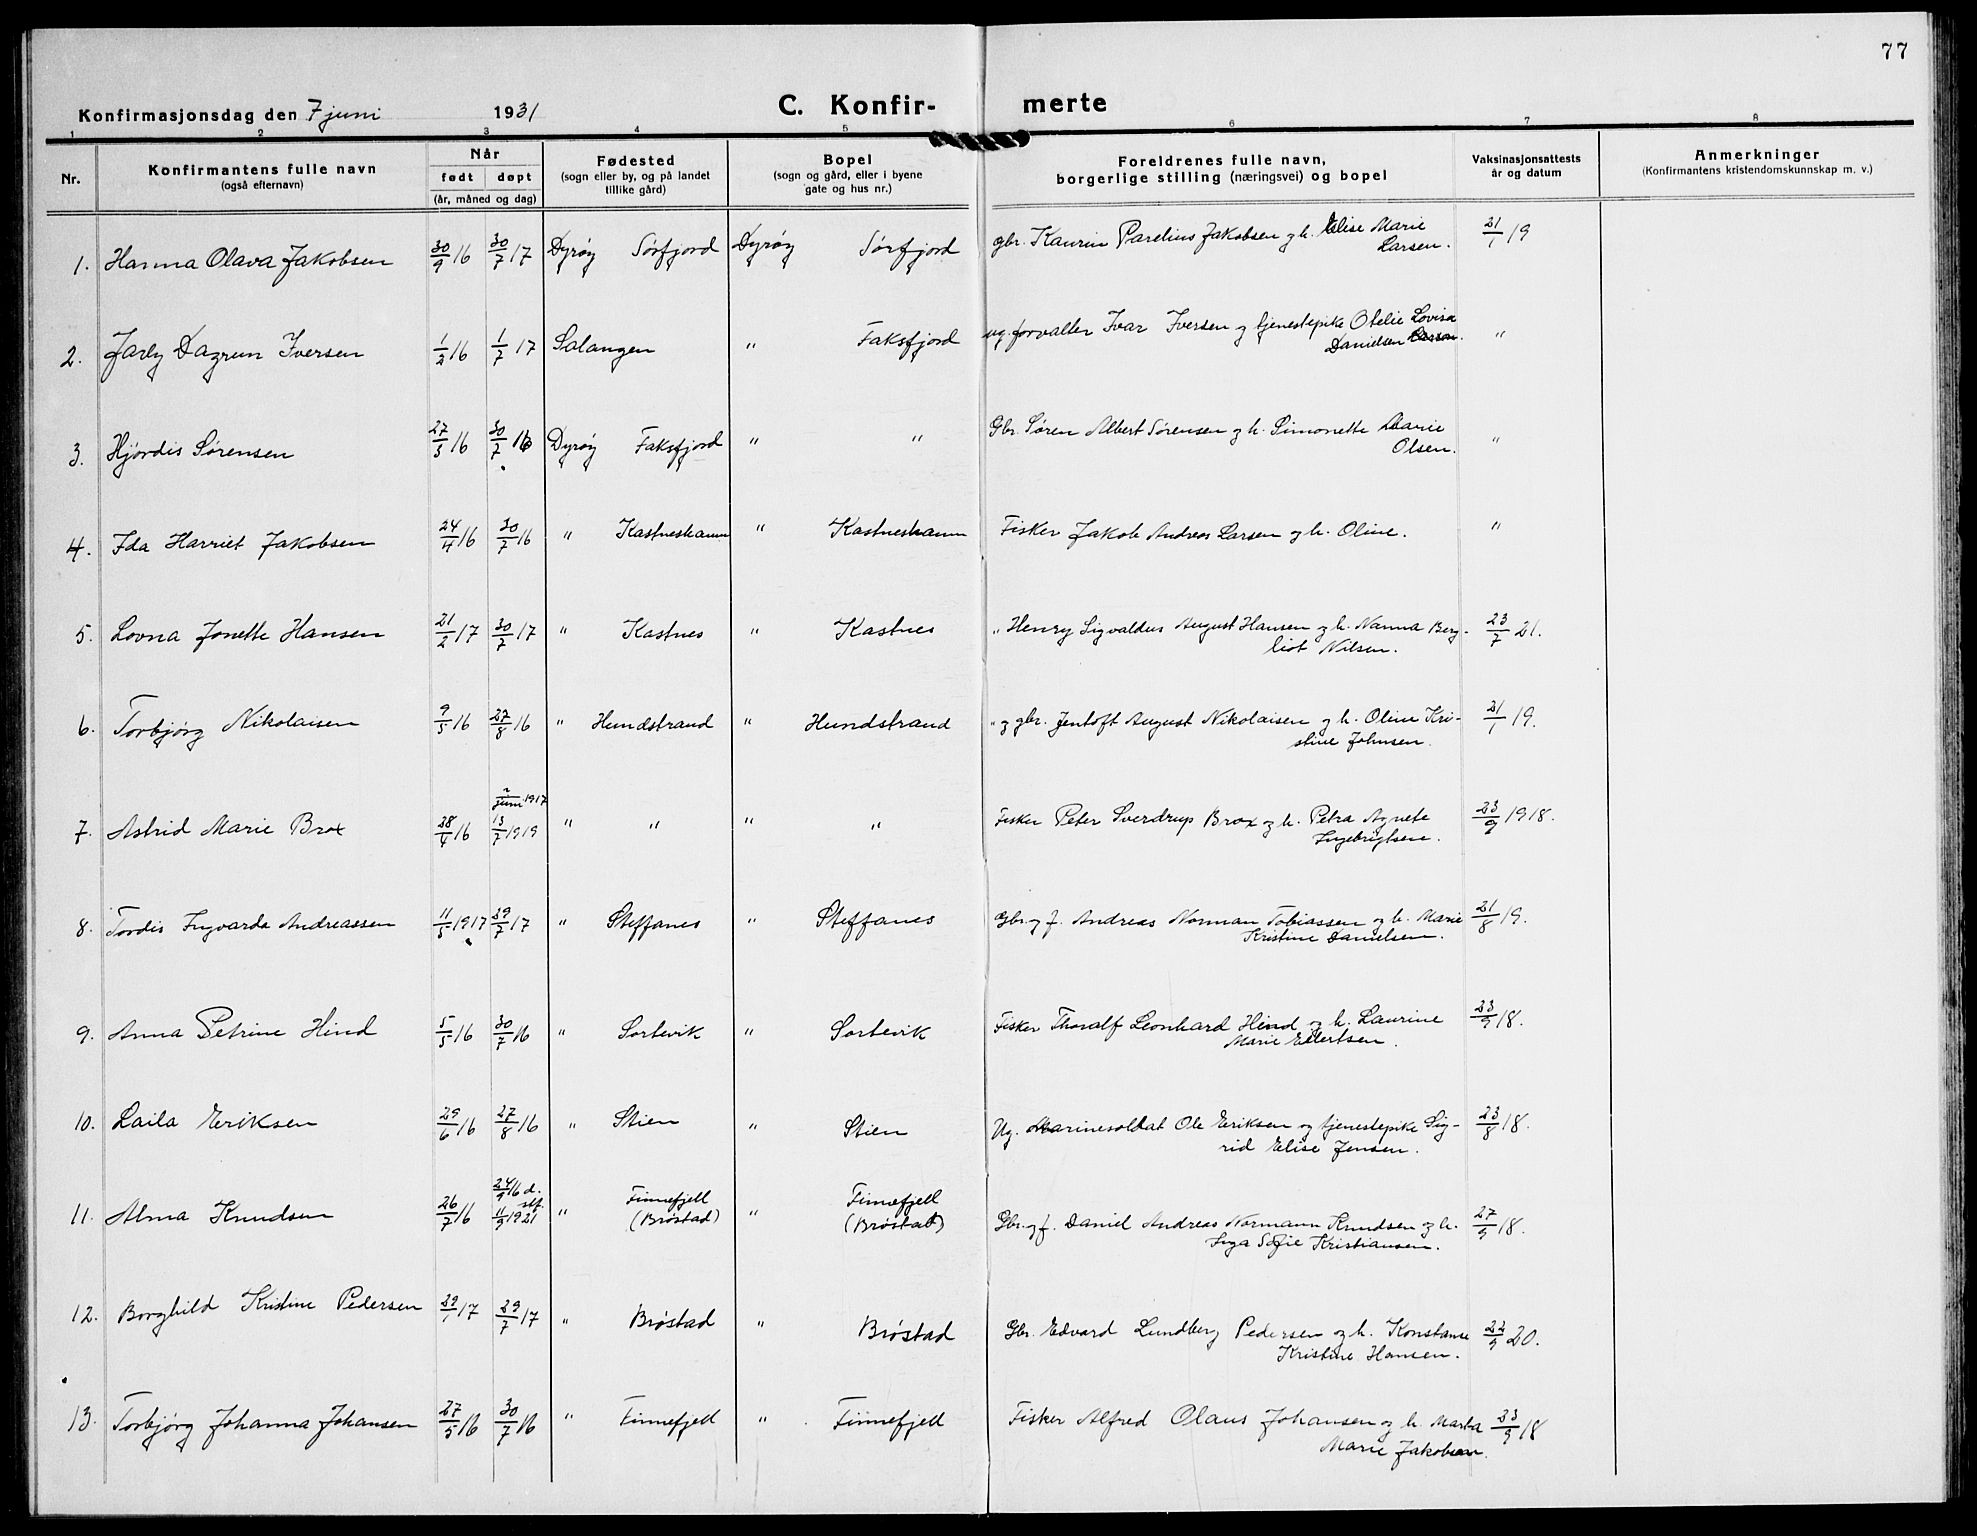 77
Konfirmasjonsdag den 7 juni 1931 C. Konfir- merte
1 2 3 4 5 6 7 8
Nr. Konfirmantens fulle navn (også efternavn) Når født døpt (år, måned og dag) Fødested (sogn eller by, og på landet tillike gård) Bopel (sogn og gård, eller i byene gate og hus nr.) Foreldrenes fulle navn, borgerlige stilling (næringsvei) og bopel Vaksinasjonsattests år og datum Anmerkninger (Konfirmantens kristendomskunnskap m. v.)
1. Hanna Olava Jakobsen 30/9 16 30/7 17 Dyrøy Sørfjord Dyrøy Sørfjord gbr. Kaurin Parelius Jakobsen og h. Elise Marie 21/1 19
Larsen.
2. Jarly Dagrun Iversen 1/2 16 1/7 17 Salangen " Faksfjord ug. forvalter Ivar Iversen og tjenestepike Otelie Lovisa "
Danielsen
3. Hjördis Sørensen 27/3 16 30/7 16 Dyrøy Faksfjord " " Gbr. Søren Albert Sørensen og h. Simonette Marie "
Olsen.
4. Ida Harriet Jakobsen 24/4 16 30/7 16 " Kastneshamn " Kastneshamn Fisker Jakob Andreas Larsen og h. Oline. "
5. Lovna Jonette Hansen 21/2 17 30/7 17 " Kastnes " Kastnes " Henry Sigvaldus August Hansen og h. Nanna Berg- 23/7 21.
liot Nilsen.
6. Torbjørg Nikolaisen 9/5 16 27/8 16 " Hundstrand " Hundstrand " og gbr. Jentoft August Nikolaisen og h. Oline Kri- 21/1 19.
stine Johnsen.
2/juni 1917
7. Astrid Marie Brox 28/4 16 13/7 1919 " " " " Fisker Peter Sverdrup Brox og h. Petra Agnete 23/9 1918.
Ingebrigtsen.
8. Tordis Ingvarda Andreassen 11/5 1917 29/7 17 " Steffanes " Steffanes Gbr. og f. Andreas Norman Tobiassen og h. Marie 21/8 19.
Kristine Danielsen.
9. Anna Petrine Hind 5/5 16 30/7 16 " Sortevik " Sortevik Fisker Thoralf Leonhard Hind og h. Laurine 23/9 18.
Marie Eilertsen.
10. Laila Eriksen 29/6 16 27/8 16 " Stien " Stien Ug. Marinesoldat Ole Eriksen og tjenestepike Sig- 23/8 18.
rid Elise Jensen.
24/9 16 d.
stf.
11. Alma Knudsen 26/7 16 11/9 1921 " Finnefjell (Brøstad) " Finnefjell (Brøstad) Gbr. og f. Daniel Andreas Normann Knudsen og h. 27/9 18.
Inga Sofie Kristiansen.
12. Borghild Kristine Pedersen 29/1 17 29/7 17 " Brøstad " Brøstad Gbr. Edvard Lundberg Pedersen og h. Konstanse 22/9 20.
Kristine Hansen.
13. Torbjørg Johanna Johansen 27/5 16 30/7 16 " Finnefjell " Finnefjell Fisker Alfred Olaus Johansen og h. Marta 23/9 18
Marie Jakobsen.